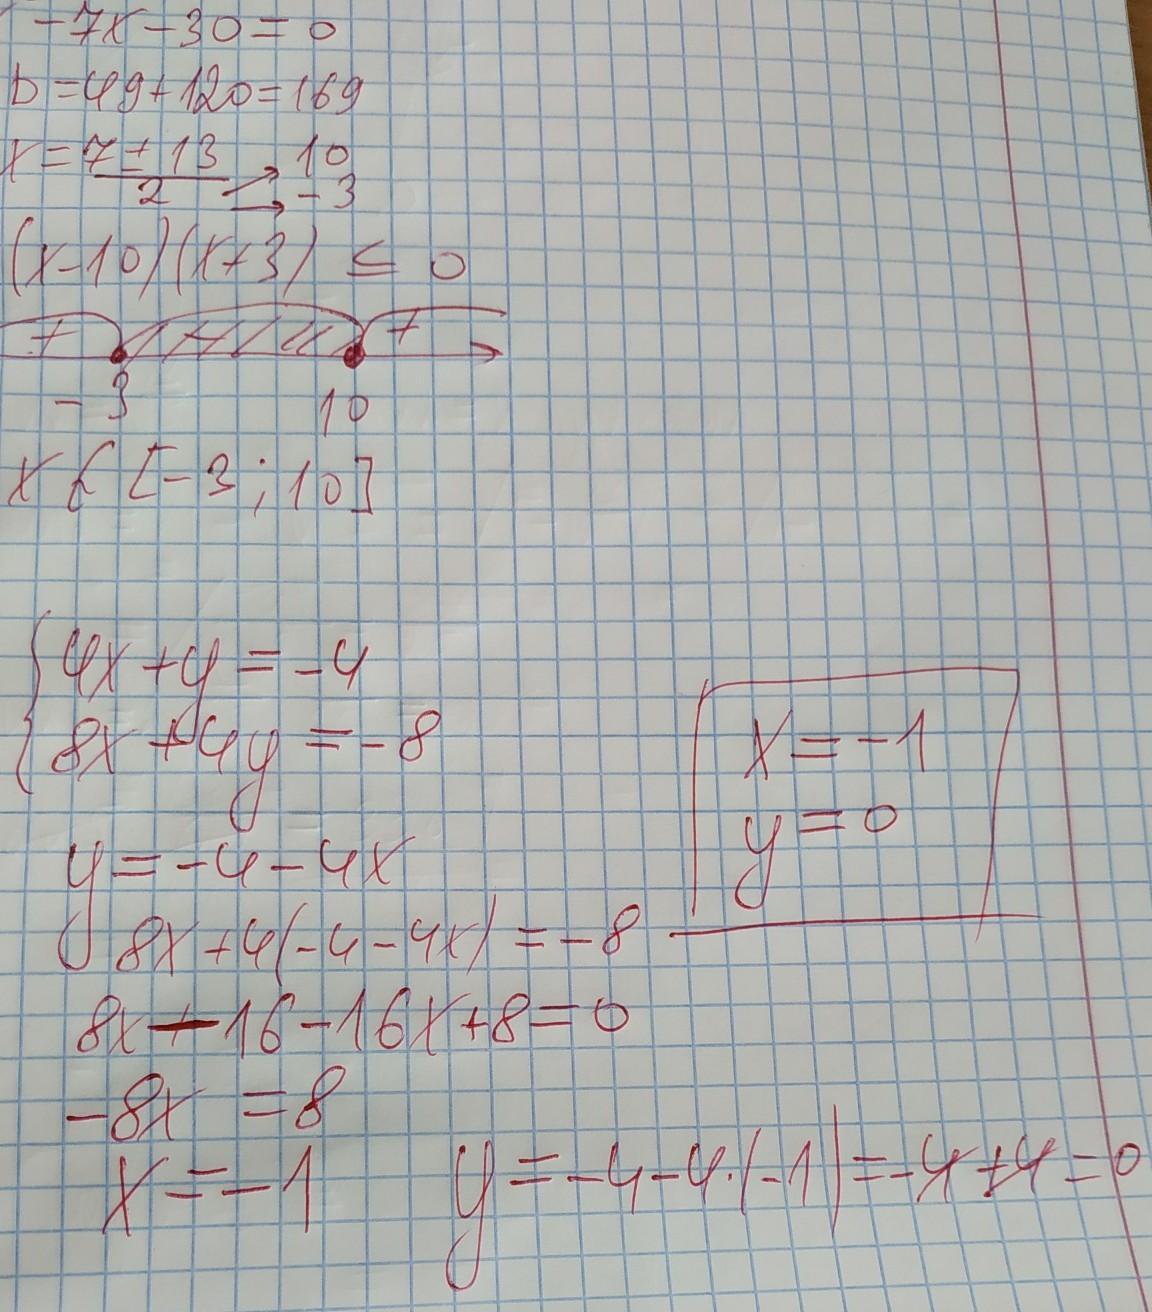 -7x-30=0
D=49+120=169
x=7±13/2 → 10 → -3
(x-10)(x+3) ≤ 0
+ +
-3 10
x ∈ [-3; 10]
{4x+y=-4
8x+4y=-8
x=-1
y=0
y=-4-4x
8x+4(-4-4x)=-8
8x-16-16x+8=0
-8x =8
x=-1 y=-4-4·(-1)=-4+4=0